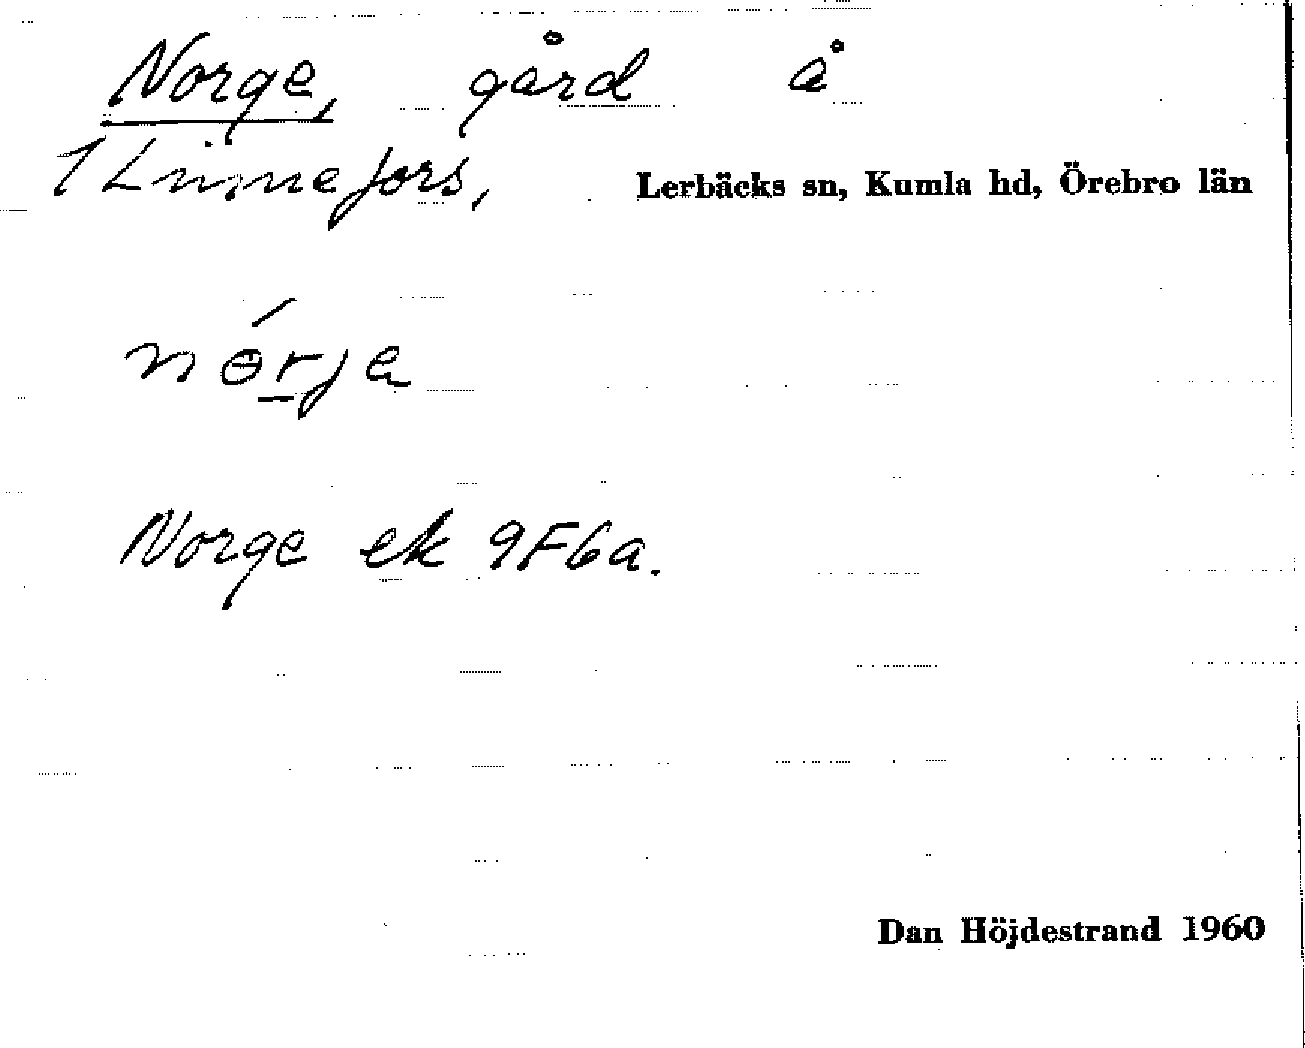 Norge, gård å
1 Linnefors, Lerbäcks sn, Kumla hd, Örebro län
nɵ́rja
Norge ek 9F6a.
Dan Höjdestrand 1960